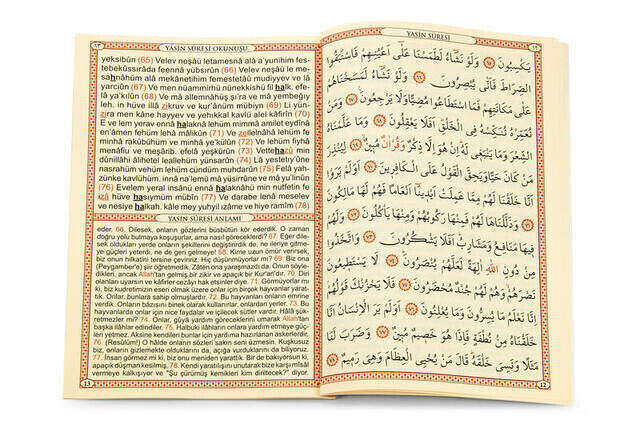 ١٣ YÂSÎN SÛRESİ OKUNUŞU
yeksibûn (65) Velev neşâü letamesnâ alâ a'yunihim fes-
tebekûssırâda feennâ yübsırûn (66) Velev neşâü le me-
sahnâhüm alâ mekânetihim femestetâû mudiyyev ve lâ
yarciûn (67) Ve men nüammirhü nünekkishü fil halk. efe-
lâ ya'kılûn (68) Ve mâ allemnâhüş şi'ra ve mâ yembeğıy
leh. in hüve illâ zikruv ve kur'ânüm mübiyn (69) Li yün-
zira men kâne hayyev ve yehıkkal kavlü alel kâfirîn (70)
E ve lem yerav ennâ halaknâ lehüm mimmâ amilet eydînâ
en'âmen fehüm lehâ mâlikûn (71) Ve zellelnâhâ lehüm fe
minhâ rakûbühüm ve minhâ ye'külûn (72) Ve lehüm fîyhâ
menâfiu ve meşârib. efelâ yeşkürûn (73) Vettehazû min
dûnillâhi âlihetel leallehüm yünsarûn (74) Lâ yestetıy'ûne
nasrahüm vehüm lehüm cündüm muhdarûn (75) Felâ yah-
zünke kavlühüm. innâ na'lemü mâ yüsirrûne ve mâ yu'linûn
(76) Evelem yeral insânü ennâ halaknâhü min nutfetin fe
izâ hüve hasıymüm mübîn (77) Ve darabe lenâ meselev
ve nesiye halkah. kâle mey yuhyil ızâme ve hiye ramîm (78)
YASİN SÛRESİ ANLAMI
eder. 66. Dilesek, onların gözlerini büsbütün kör ederdik. O zaman
doğru yolu bulmaya koşuşurlar, ama nasıl göreceklerdi? 67. Eğer dile-
sek oldukları yerde onların şekillerini değiştirirdik de, ne ileriye gitme-
ye güçleri yeterdi, ne de geri gelmeye! 68. Kime uzun ömür verirsek,
biz onun hilkatini tersine çeviririz. Hiç düşünmüyorlar mı? 69. Biz ona
(Peygamber'e) şiir öğretmedik. Zâten ona yaraşmazdı da. Onun söyle-
dikleri, ancak Allah'tan gelmiş bir zikir ve apaçık bir Kur'an'dır. 70. Diri
olanları uyarsın ve kâfirler cezâyı hak etsinler diye. 71. Görmüyorlar mı
ki, biz kudretimizin eseri olmak üzere onlar için birçok hayvanlar yarat-
tık. Onlar, bunlara sahip olmuşlardır. 72. Bu hayvanları onların emrine
verdik. Onların bâzısını binek olarak kullanırlar, onlardan yerler. 73. Bu
hayvanlarda onlar için nice faydalar ve içilecek sütler vardır. Hâlâ şük-
retmezler mi? 74. Onlar, güyâ yardım göreceklerini umarak Allah'tan
başka ilâhlar edindiler. 75. Halbuki ilâhların onlara yardım etmeye güç-
leri yetmez. Aksine kendileri bunlar için yardıma hazırlanan askerlerdir.
76. (Resûlüm!) O hâlde onların sözleri sakın seni üzmesin. Kuşkusuz
biz, onların gizlemekte olduklarını da, açığa vurduklarını da biliyoruz.
77. İnsan görmez mi ki, biz onu meniden yarattık. Bir de bakıyorsun ki,
apaçık düşman kesilmiş. 78. Kendi yaratılışını unutarak bize karşı misâl
vermeye kalkışıyor ve "Şu çürümüş kemikleri kim diriltecek?" diyor.
13
YASİN SÛRESİ ١٢
يَكْسِبُونَ ﴿٦٥﴾ وَلَوْ نَشَٓاءُ لَطَمَسْنَا عَلٰٓى اَعْيُنِهِمْ فَاسْتَبَقُوا
الصِّرَاطَ فَاَنّٰى يُبْصِرُونَ ﴿٦٦﴾ وَلَوْ نَشَٓاءُ لَمَسَخْنَاهُمْ
عَلٰى مَكَانَتِهِمْ فَمَا اسْتَطَاعُوا مُضِيًّا وَلَا يَرْجِعُونَ ﴿٦٧﴾ وَمَنْ
نُعَمِّرْهُ نُنَكِّسْهُ فِي الْخَلْقِ اَفَلَا يَعْقِلُونَ ﴿٦٨﴾ وَمَا عَلَّمْنَاهُ
الشِّعْرَ وَمَا يَنْبَغِي لَهُ اِنْ هُوَ اِلَّا ذِكْرٌ وَقُرْاٰنٌ مُبِينٌ ﴿٦٩﴾ لِيُنْذِرَ
مَنْ كَانَ حَيًّا وَيَحِقَّ الْقَوْلُ عَلَى الْكَافِرِينَ ﴿٧٠﴾ اَوَلَمْ يَرَوْا
اَنَّا خَلَقْنَا لَهُمْ مِمَّا عَمِلَتْ اَيْدِينَا اَنْعَاماً فَهُمْ لَهَا مَالِكُونَ
﴿٧١﴾ وَذَلَّلْنَاهَا لَهُمْ فَمِنْهَا رَكُوبُهُمْ وَمِنْهَا يَأْكُلُونَ ﴿٧٢﴾ وَلَهُمْ
فِيهَا مَنَافِعُ وَمَشَارِبُ اَفَلَا يَشْكُرُونَ ﴿٧٣﴾ وَاتَّخَذُوا
مِنْ دُونِ اللّٰهِ اٰلِهَةً لَعَلَّهُمْ يُنْصَرُونَ ﴿٧٤﴾ لَا يَسْتَطِيعُونَ
نَصْرَهُمْ وَهُمْ لَهُمْ جُنْدٌ مُحْضَرُونَ ﴿٧٥﴾ فَلَا يَحْزُنْكَ قَوْلُهُمْ
اِنَّا نَعْلَمُ مَا يُسِرُّونَ وَمَا يُعْلِنُونَ ﴿٧٦﴾ اَوَلَمْ يَرَ الْاِنْسَانُ اَنَّا
خَلَقْنَاهُ مِنْ نُطْفَةٍ فَاِذَا هُوَ خَصِيمٌ مُبِينٌ ﴿٧٧﴾ وَضَرَبَ لَنَا
مَثَلًا وَنَسِيَ خَلْقَهُ قَالَ مَنْ يُحْيِي الْعِظَامَ وَهِيَ رَمِيمٌ ﴿٧٨﴾
12